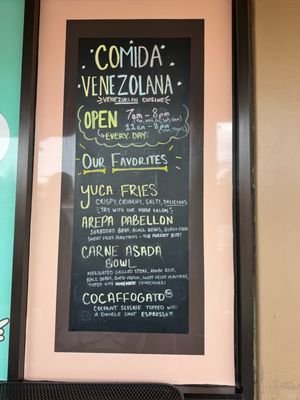 COMIDA
VENEZOLANA
VENEZUELAN CUISINE
OPEN 7am - 8pm
11am - 8pm
EVERY DAY!
OUR FAVORITES
YUCA FRIES
CRISPY, CRUNCHY, SALTY, DELICIOUS
TRY WITH OUR HOUSE
AREPA PABELLON
SHREDDED BEEF, BLACK BEANS, QUESO FRESCO
SWEET FRIED PLANTAINS - THE PERFECT BITE!
CARNE ASADA
BOWL
MARINATED GRILLED STEAK, RICE,
BLACK BEANS, QUESO FRESCO, SWEET FRIED PLANTAINS,
TOPPED WITH HOMEMADE CHIMICHURRI
COCAFFOGATO
COCONUT SLUSHIE TOPPED WITH
A DOUBLE SHOT ESPRESSO